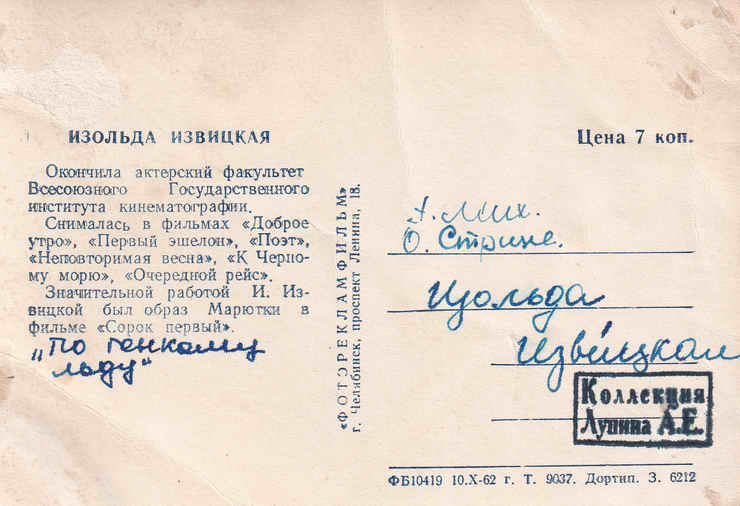 ИЗОЛЬДА ИЗВИЦКАЯ
Окончила актерский факультет
Всесоюзного Государственного
института кинематографии.
Снималась в фильмах «Доброе
утро», «Первый эшелон», «Поэт»,
«Неповторимая весна», «К Черно-
му морю», «Очередной рейс».
Значительной работой И. Из-
вицкой был образ Марютки в
фильме «Сорок первый».
„По тонкому
льду“
«ФОТОРЕКЛАМФИЛЬМ»
г. Челябинск, проспект Ленина, 18.
Цена 7 коп.
О. Стриж.
Изольда
Извицкая
Коллекция
Лупина А.Е.
ФБ10419 10.X-62 г. Т. 9037. Дортип. З. 6212